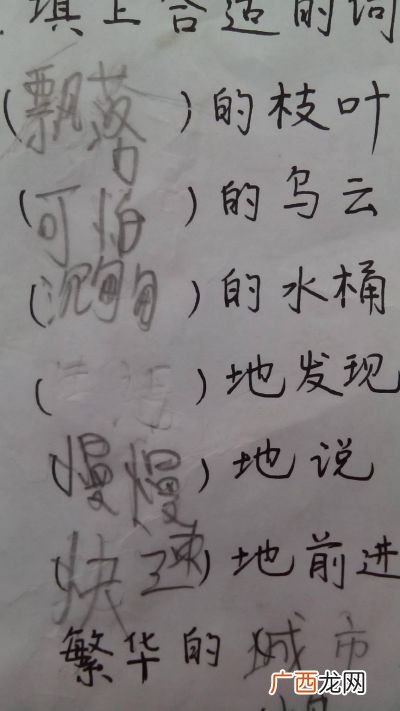 填上合适的词
(飘落)的枝叶
(可怕)的乌云
(沉甸甸)的水桶
( )地发现
(慢慢)地说
(快速)地前进
繁华的城市
广西龙网